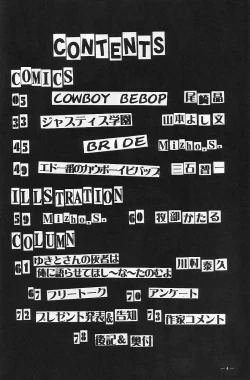 CONTENTS
COMICS
03 COWBOY BEBOP 尾崎晶
33 ジャスティス学園 山本よし文
45 BRIDE Mizho.S.
49 エド一番のカウボーイビバップ 三石智一
ILLSTRATION
59 Mizho.S. 60 牧部かたる
COLUMN
61 ゆきとさんの灰者は 川村泰久
俺に語らせてほし〜な〜たのむよ
67 フリートーク 70 アンケート
72 プレゼント発表&告知 73 作家コメント
74 後記&奥付
— 4 —